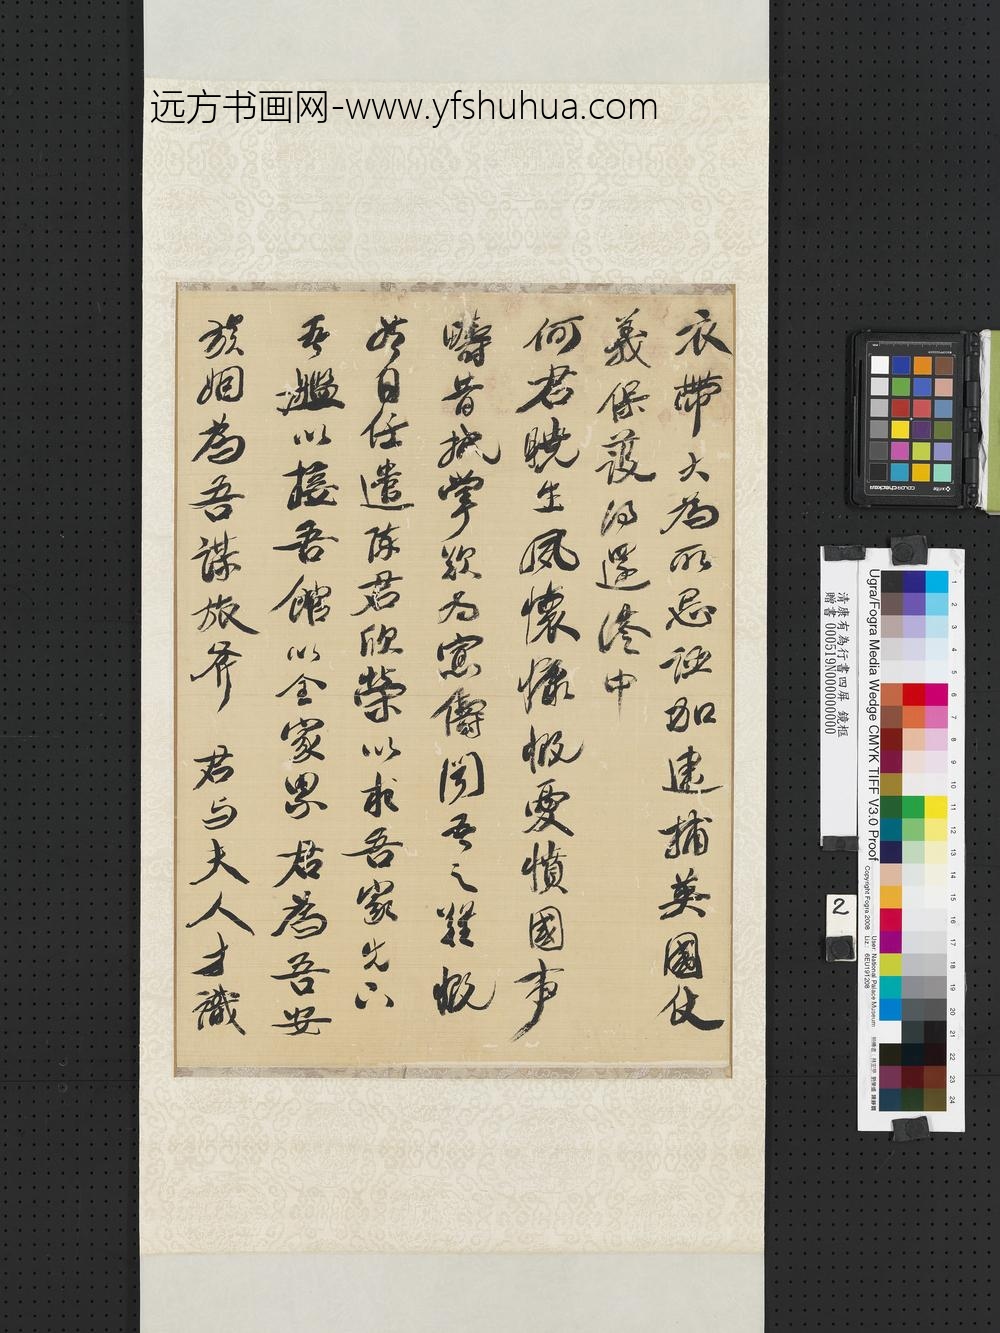 远方书画网-www.yfshuhua.com
衣帶大為所忌誣加逮捕英國仗
義保護得還港中
何君曉生夙懷慷慨憂憤國事
疇昔執掌欲為窓儔聞吾之難慨
日任遣陳君欣榮以求吾家先
吾艦以接吾館以全家累君為吾安
族姻為吾謀旅斧 君與夫人才識
清康有為行書四屏 鏡框
贈書 000519N000000000
2
Ugra/Fogra Media Wedge CMYK TIFF V3.0 Proof
Copyright Fogra 2008
User: National Palace Museum
1
2
3
4
5
6
7
8
9
10
11
12
13
14
15
16
17
18
19
20
21
22
23
24